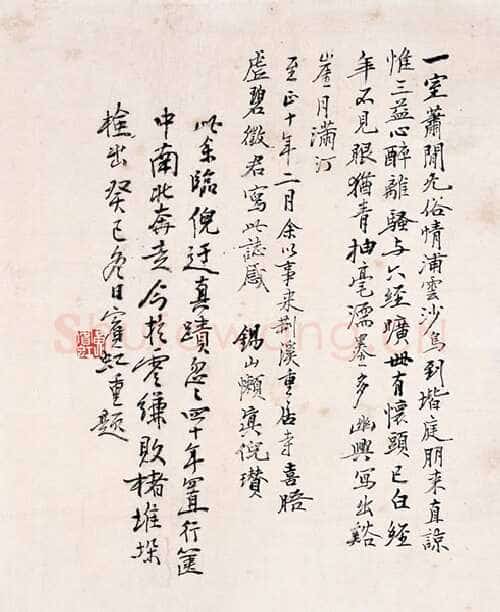 一室蕭閒无俗情浦雲沙鳥到堦庭朋来直諒
惟三益心醉離騷与六經曠世有懷頭已白經
年不見眼猶青抽毫濡墨多幽興寫出谿
崖月滿汀
至正十年二月余以事来荆溪重居寺喜晤
虛碧徵君寫此誌感 錫山懶倪瓚
此余臨倪迂真蹟忽々四十年置行篋
中南北奔走今於零縑敗楮堆垛
撿出癸巳冬日賓虹重題
Shufawang.cn